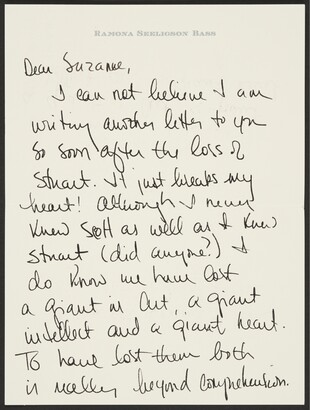 RAMONA SEELIGSON BASS
Dear Suzanne,
I can not believe I am
writing another letter to you
so soon after the loss of
Stuart. It just breaks my
heart! Although I never
knew Scott as well as I knew
Stuart (did anyone?) I
do know we have lost
a giant in Art, a giant
intellect and a giant heart.
To have lost them both
is really beyond comprehension.